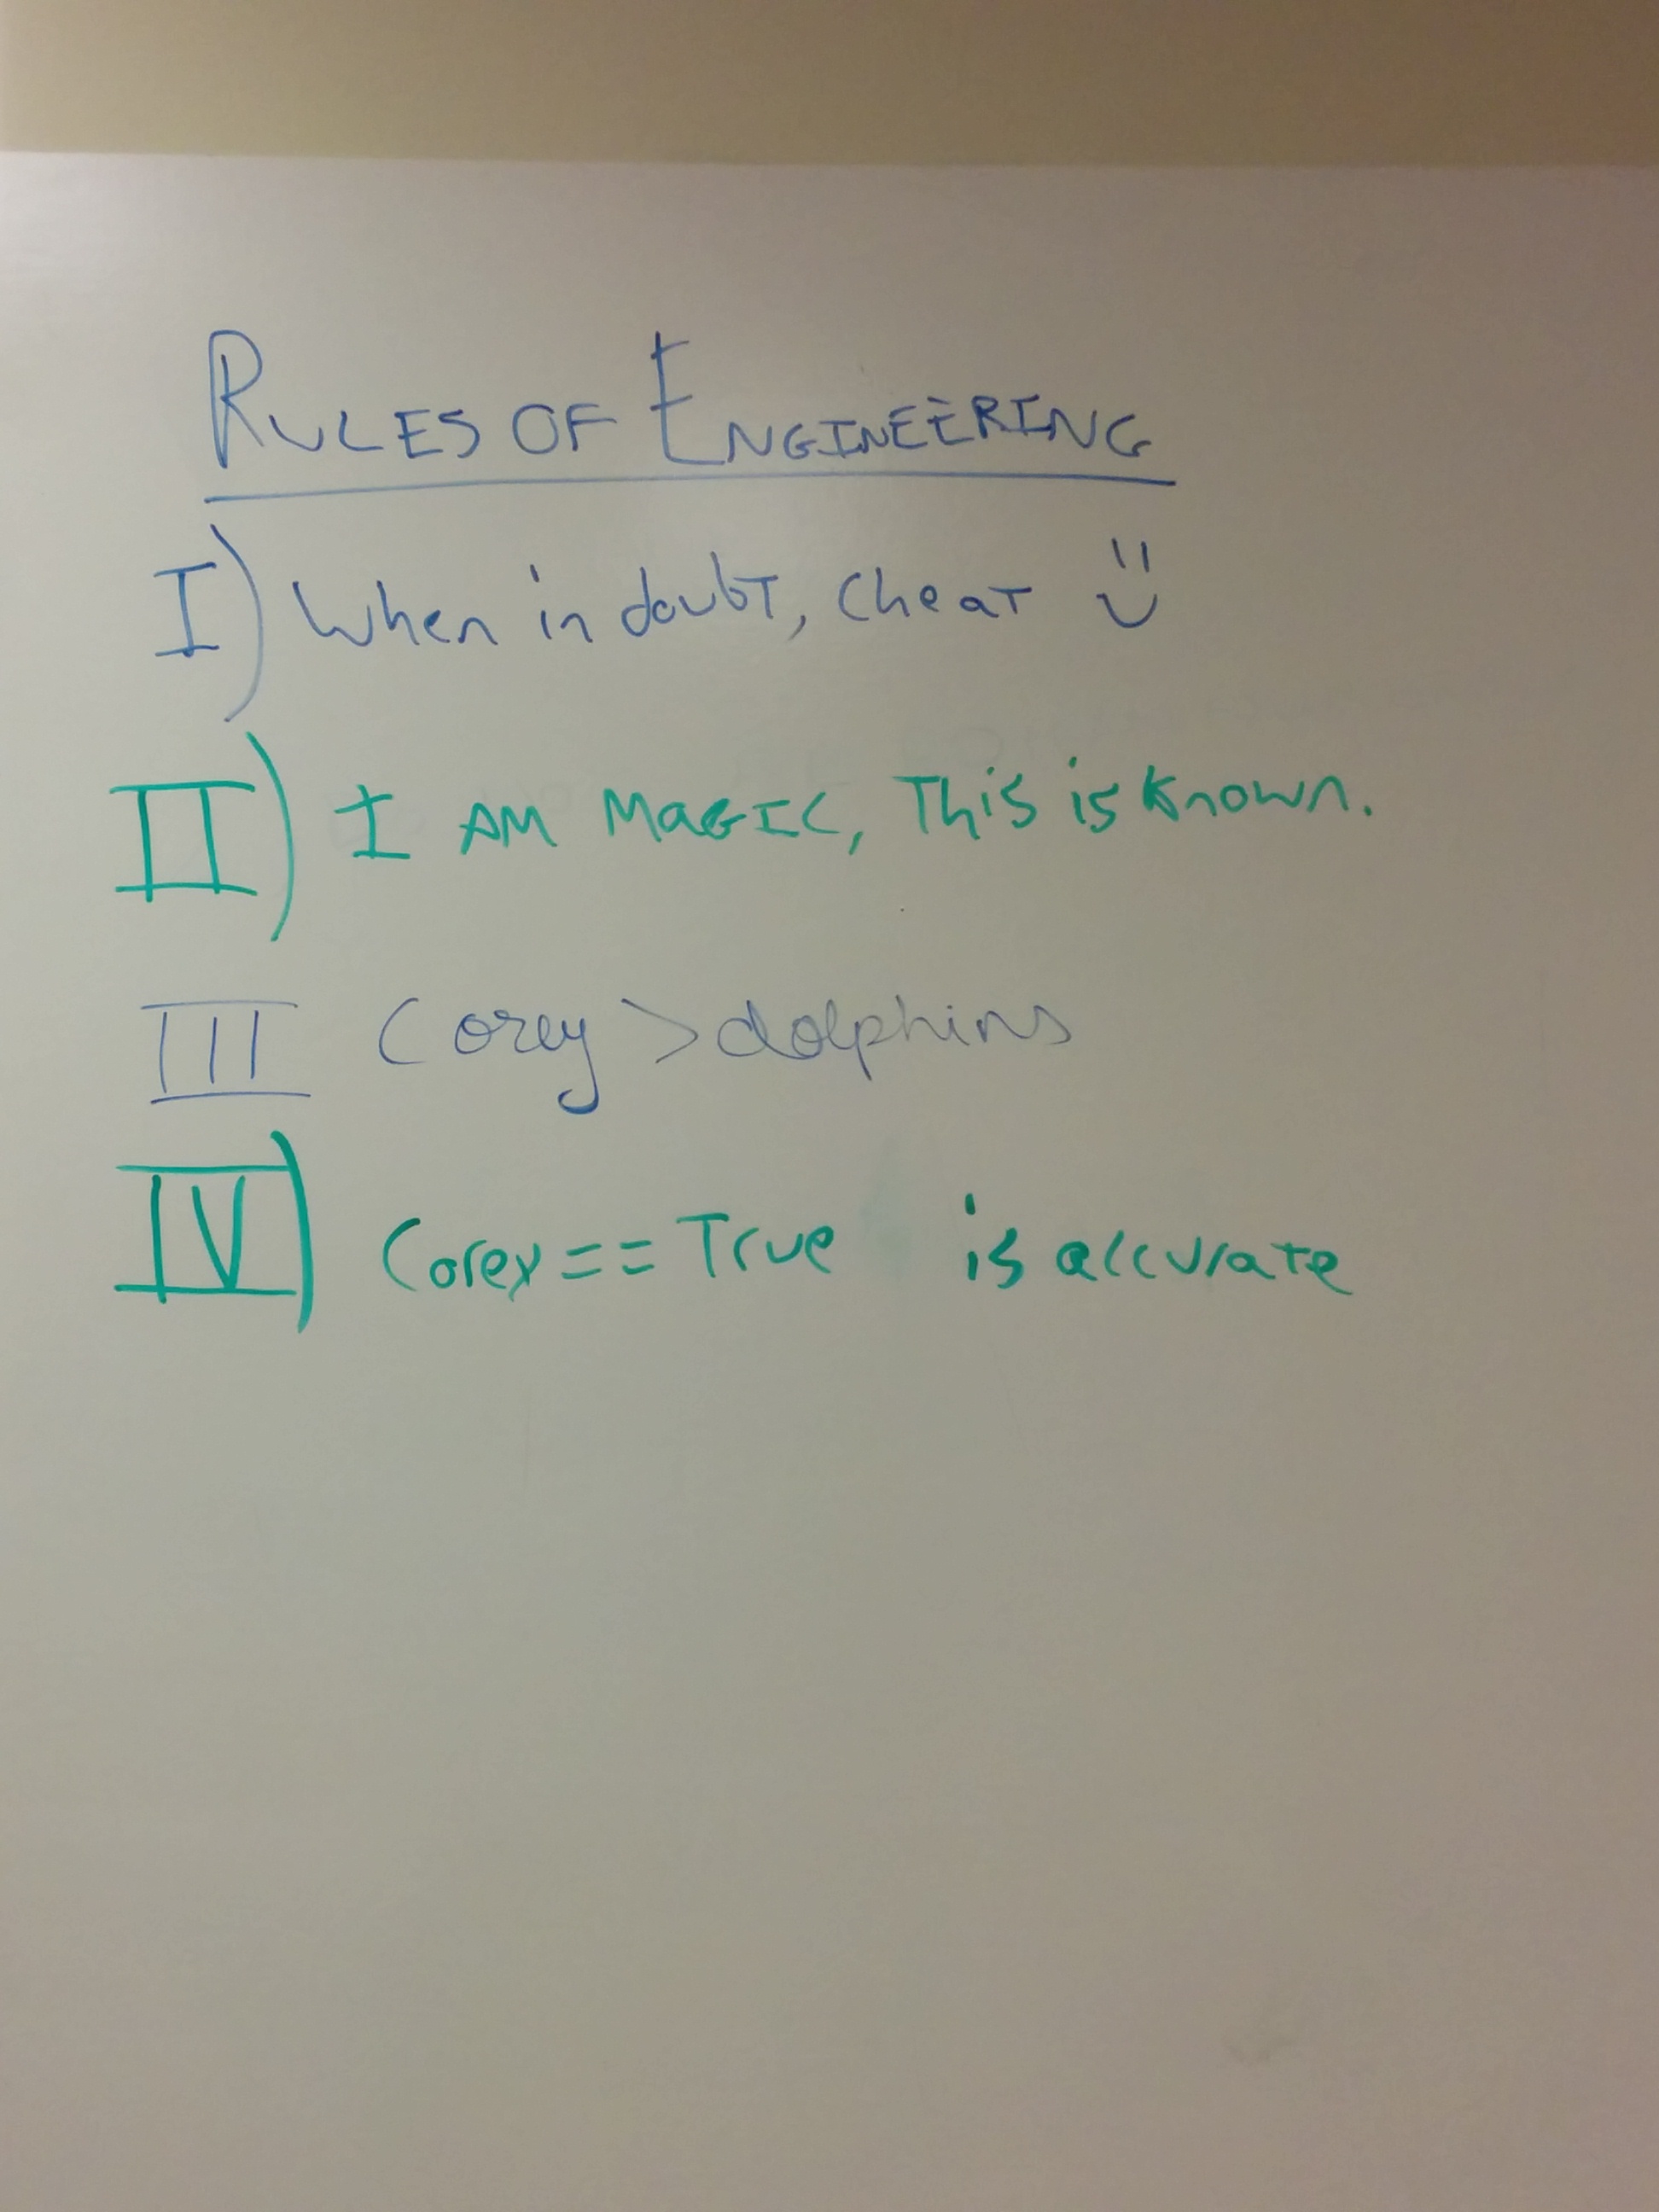 RULES OF ENGINEERING
I) When in doubt, cheat :)
II) I AM MAGIC, This is known.
III Corey > dolphins
IV) Corey == True is accurate